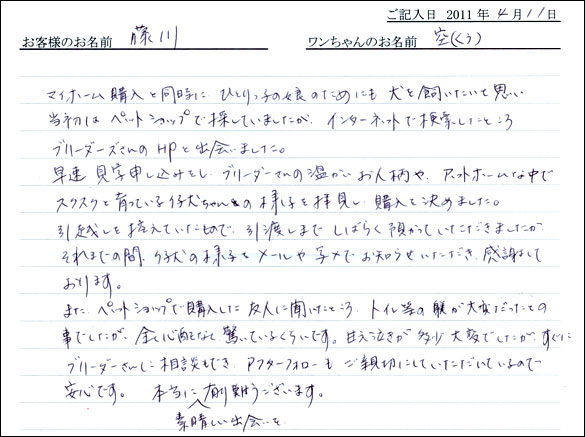 ご記入日 2011年4月11日
お客様のお名前 藤川 ワンちゃんのお名前 空(くう)
マイホーム購入と同時に ひとりっ子の娘のためにも 犬を飼いたいと思い
当初は ペットショップで探していましたが、インターネットで検索したところ
ブリーダーズさんのHPと出会いました。
早速 見学申し込みをし、ブリーダーさんの温かいお人柄や、アットホームな中で
スクスクと育っている仔犬ちゃんの様子を拝見し 購入を決めました。
引越しを控えていたもので、引渡しまで しばらく預かっていただきましたが
それまでの間、仔犬の様子をメールや写メでお知らせいただき、感謝して
おります。
また、ペットショップで購入した友人に聞いたところ、トイレ等の躾が大変だったとの
事でしたが、全く心配なく 驚いているくらいです。甘え泣きが多少大変でしたが、すぐに
ブリーダーさんに相談もでき、アフターフォローも ご親切にしていただいているので
安心です。 本当に 有り難うございます。
素晴しい出会いを